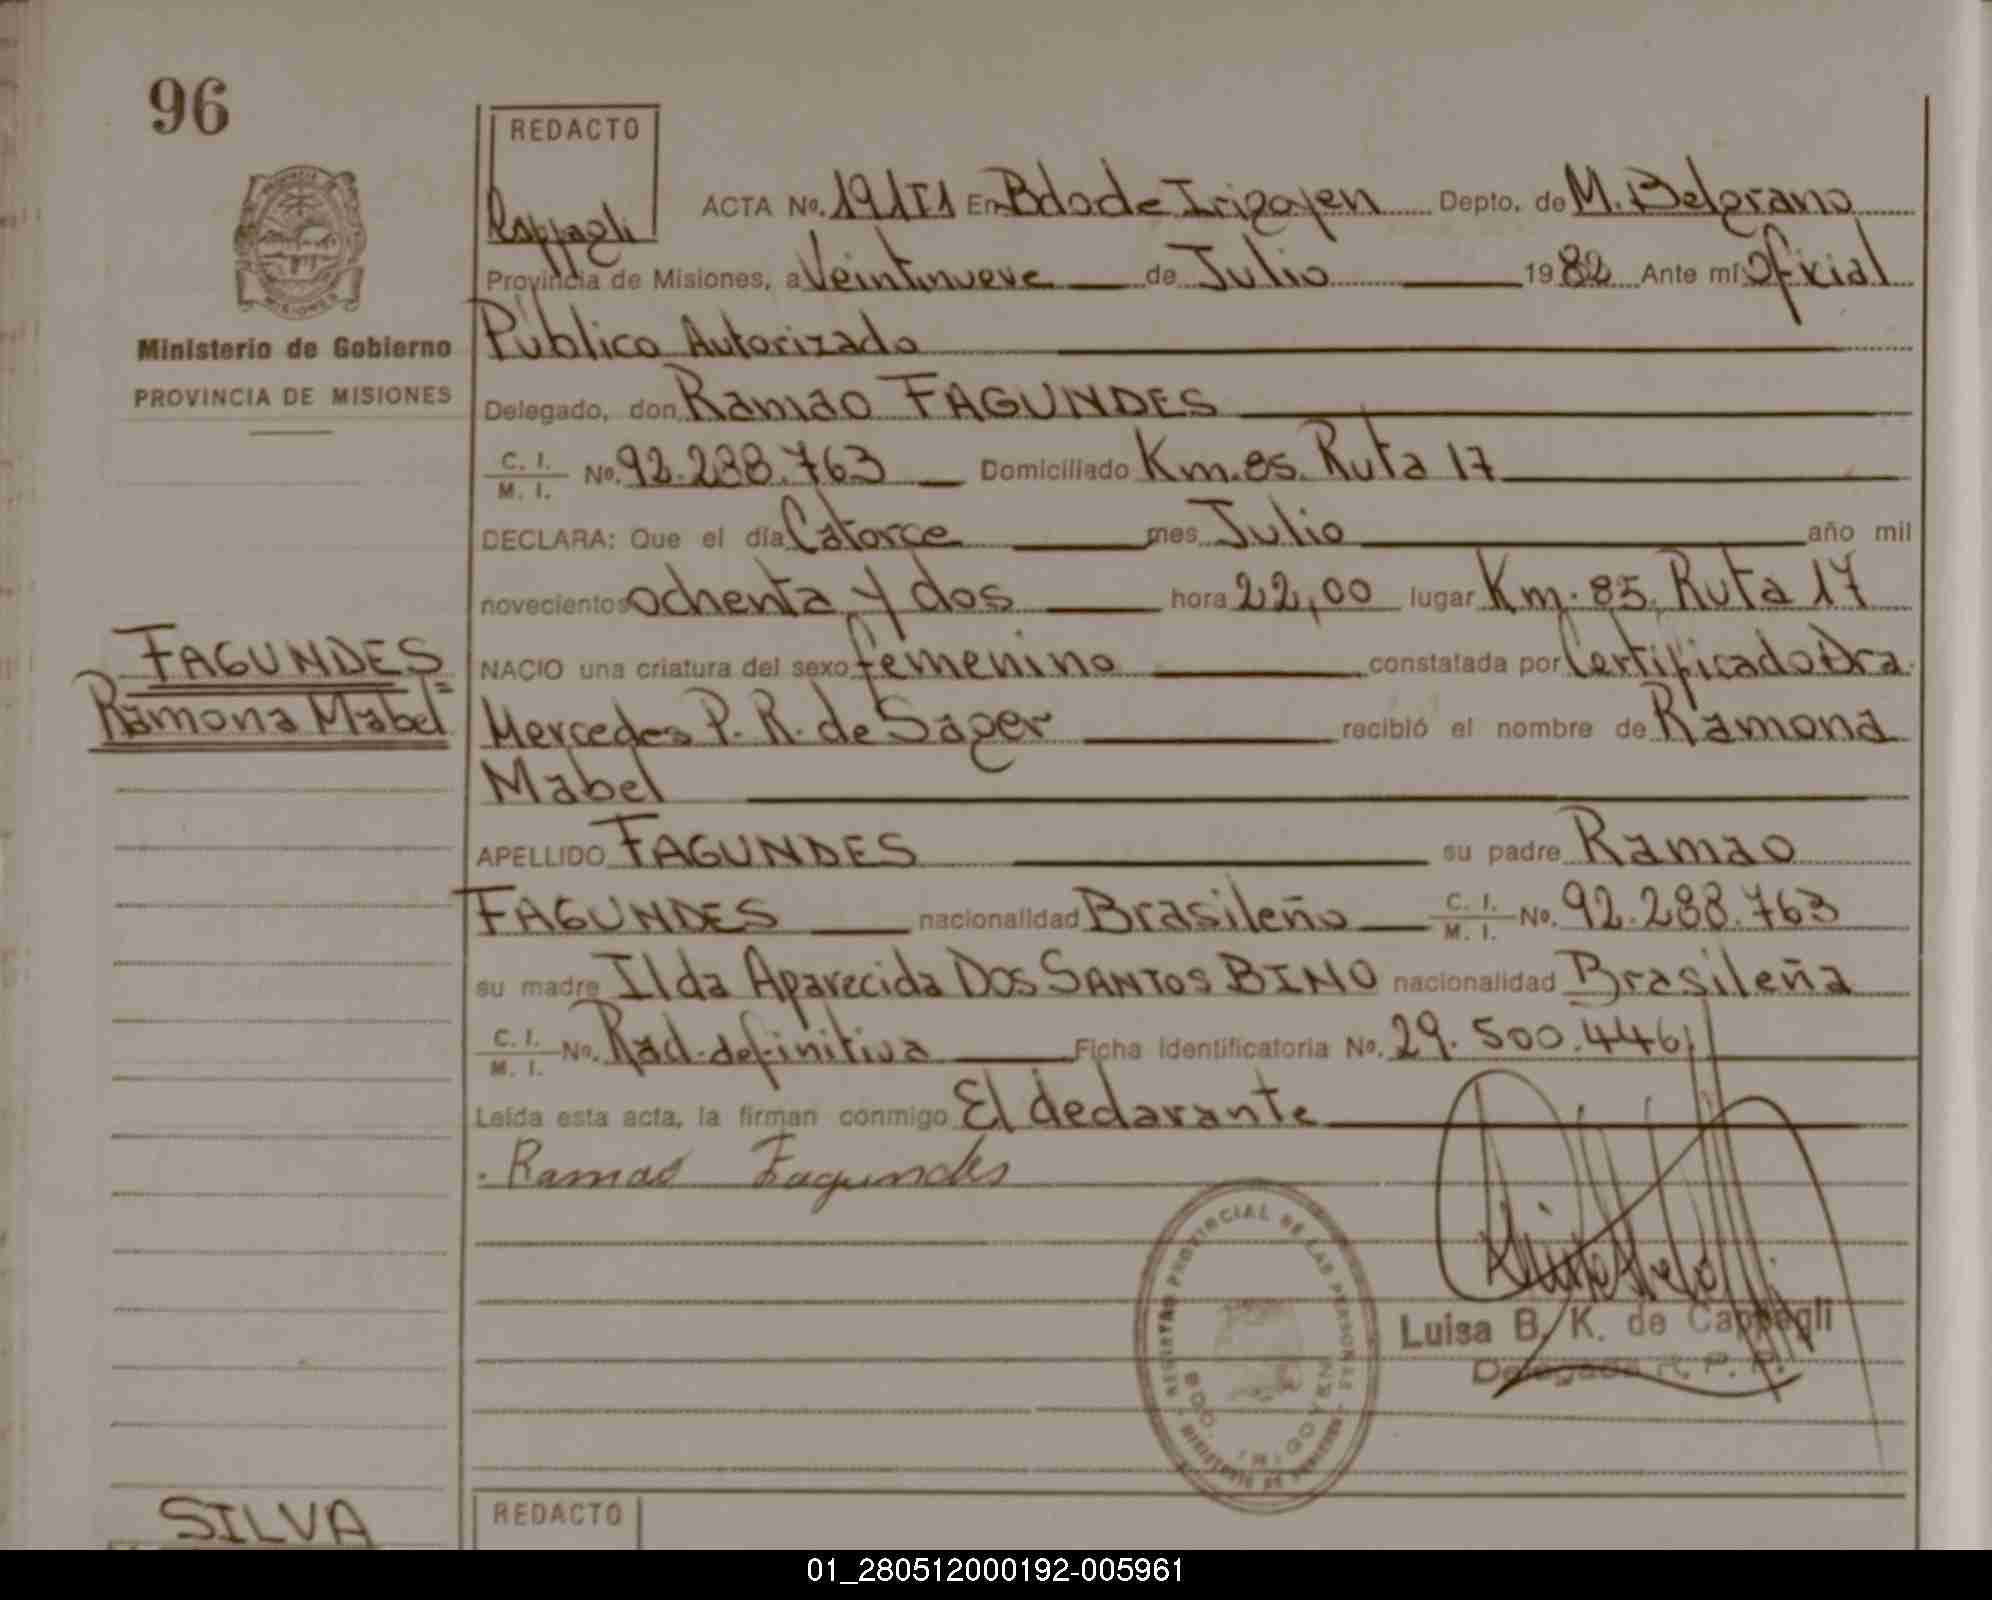 96
REDACTO
Cappagli
ACTA No. 191T1 En Bdo de Irigoyen Depto. de M. Belgrano
Provincia de Misiones, a Veintinueve de Julio 1982 Ante mí Oficial
Público Autorizado
Ministerio de Gobierno
PROVINCIA DE MISIONES
Delegado, don Ramao FAGUNDES
C. I. M. I. No. 92.288.763 Domiciliado Km.85. Ruta 17
DECLARA: Que el día Catorce mes Julio año mil
novecientos ochenta y dos hora 22,00 lugar Km. 85. Ruta 17
FAGUNDES
Ramona Mabel=
NACIO una criatura del sexo femenino constatada por Certificado Dra.
Mercedes P. R. de Sager recibió el nombre de Ramona
Mabel
APELLIDO FAGUNDES su padre Ramao
FAGUNDES nacionalidad Brasileño C. I. M. I. No. 92.288.763
su madre Ilda Aparecida DOS SANTOS BINO nacionalidad Brasileña
C. I. M. I. No. Rad. definitiva Ficha Identificatoria No. 29.500.446
Leída esta acta, la firman conmigo El declarante
Ramao Fagundes
REGISTRO PROVINCIAL DE LAS PERSONAS
BDO. IRIGOYEN
MINISTERIO DE GOBIERNO
Luisa B. K. de Cappagli
Delegada R. P. P.
SILVA
REDACTO
01_280512000192-005961